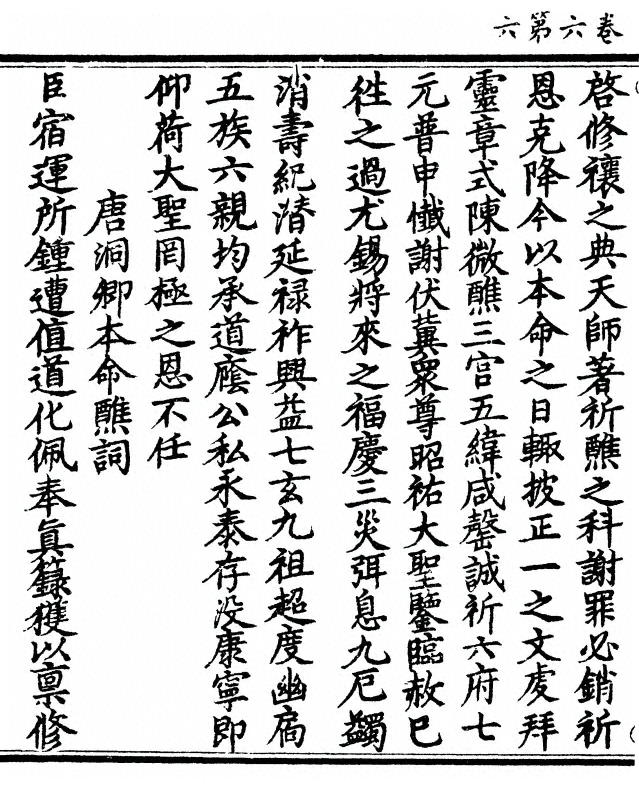 卷六第六
啓修禳之典天師著祈醮之科謝罪必銷祈
恩克降今以本命之日輙披正一之文虔拜
靈章式陳微醮三宫五緯咸罄誠祈六府七
元普申懺謝伏冀衆尊昭祐大聖鑒臨赦已
徃之過尤錫將來之福慶三災弭息九厄蠲
消壽紀潜延禄祚興益七玄九祖超度幽扄
五族六親均承道廕公私永泰存没康寧即
仰荷大聖罔極之恩不任
唐洞卿本命醮詞
臣宿運所鍾遭值道化佩奉眞籙獲以禀修